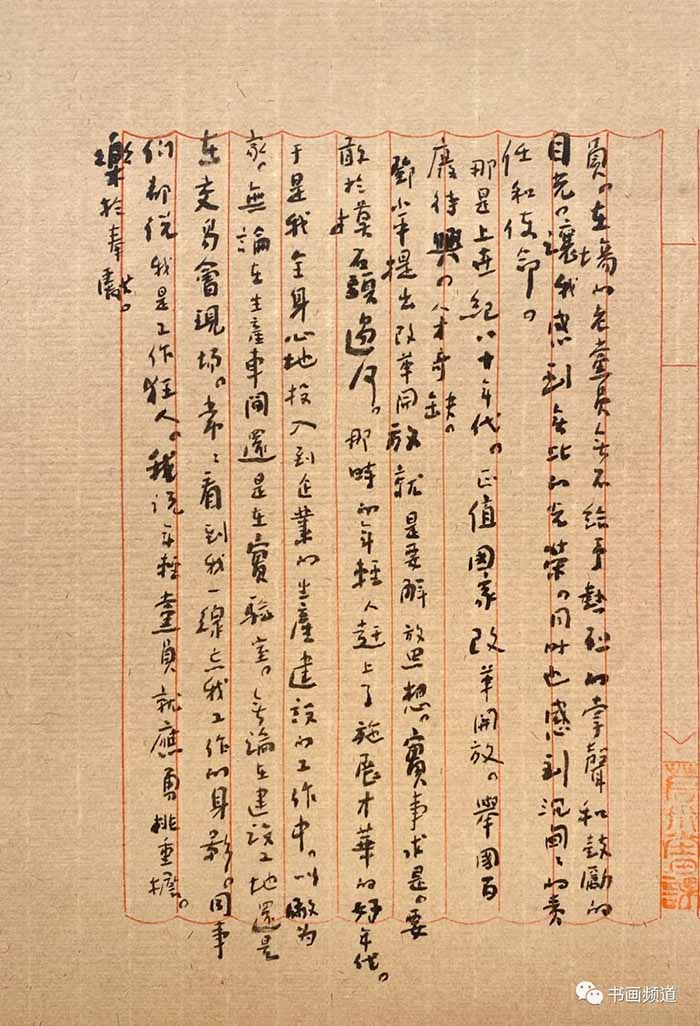 員。在場的老黨員無不給予熱烈的掌聲和鼓勵的
目光。讓我感到無比的光榮。同时也感到沉甸々的責
任和使命。
那是上世紀八十年代。正值國家改革開放。舉國百
廢待興。人才奇缺。
鄧小平提出改革開放就是要解放思想。實事求是。要
敢於摸石頭過河。那時的年輕人赶上了施展才華的好年代。
于是我全身心地投入到企業的生產建設的工作中。以廠为
家。無論在生產車間還是在實驗室。無論在建设工地還是
在交易會現场。常々看到我一線忘我工作的身影。同事
们都说我是工作狂人。我说年轻黨員就應勇挑重擔。
樂於奉獻。
书画频道